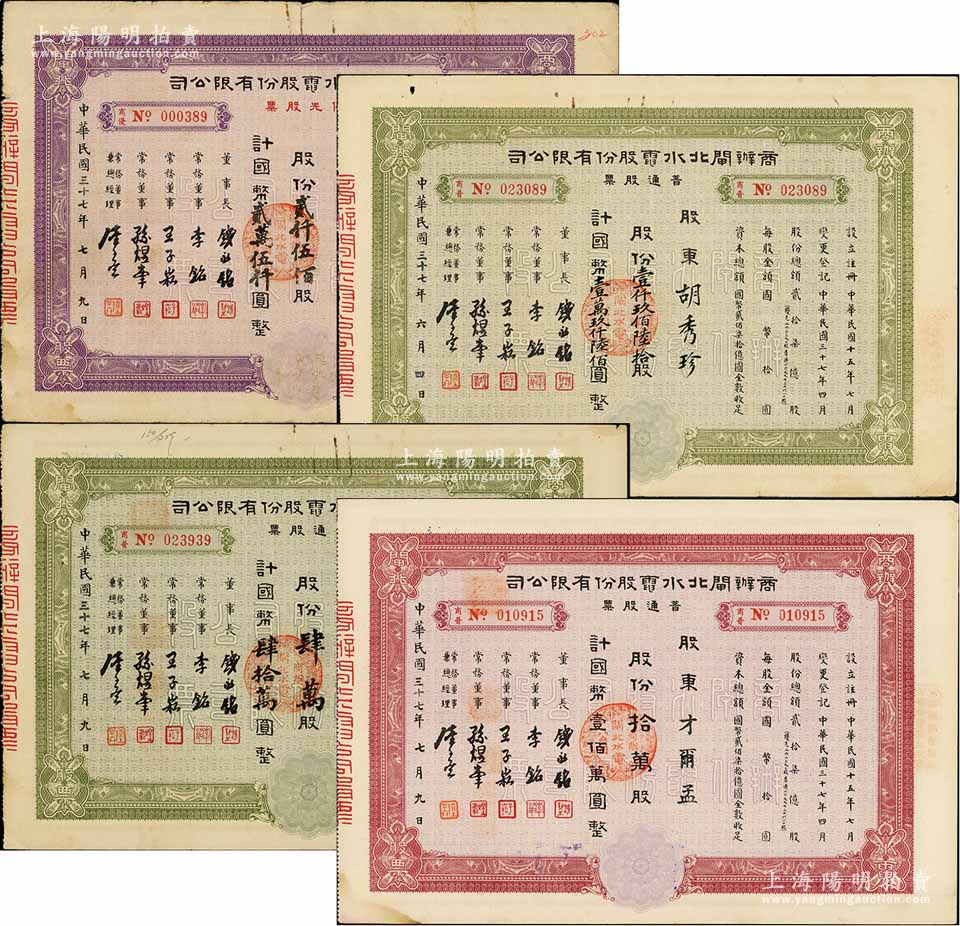 上海陽明拍賣
www.yangmingauction.com
水電股份有限公司
先股票
商優 No 000389
股份貳仟伍佰股
計國幣貳萬伍仟圓整
董事長
常務董事 李銘
常務董事
常務董事
常務董事兼總經理
中華民國三十七年七月九日
商辦閘北水電股份有限公司
普通股票
商普 No 023089
商普 No 023089
設立註冊 中華民國十五年七月
變更登記 中華民國三十七年四月
股份總額貳拾柒億股
每股金額國幣拾圓
資本總額國幣貳佰柒拾億圓全數收足
股東胡秀珍
股份壹仟玖佰陸拾股
計國幣壹萬玖仟陸佰圓整
董事長
常務董事 李銘
常務董事
常務董事
常務董事兼總經理
中華民國三十七年六月四日
水電股份有限公司
通股票
商普 No 023939
股份肆萬股
計國幣肆拾萬圓整
董事長
常務董事 李銘
常務董事
常務董事
常務董事兼總經理
中華民國三十七年七月九日
上海陽明拍賣
www.yangmingauction.com
商辦閘北水電股份有限公司
普通股票
商普 No 010915
商普 No 010915
設立註冊 中華民國十五年七月
變更登記 中華民國三十七年四月
股份總額貳拾柒億股
每股金額國幣拾圓
資本總額國幣貳佰柒拾億圓全數收足
股東才爾孟
股份拾萬股
計國幣壹佰萬圓整
董事長
常務董事 李銘
常務董事
常務董事
常務董事兼總經理
中華民國三十七年七月九日
上海陽明拍賣
www.yangmingauction.com